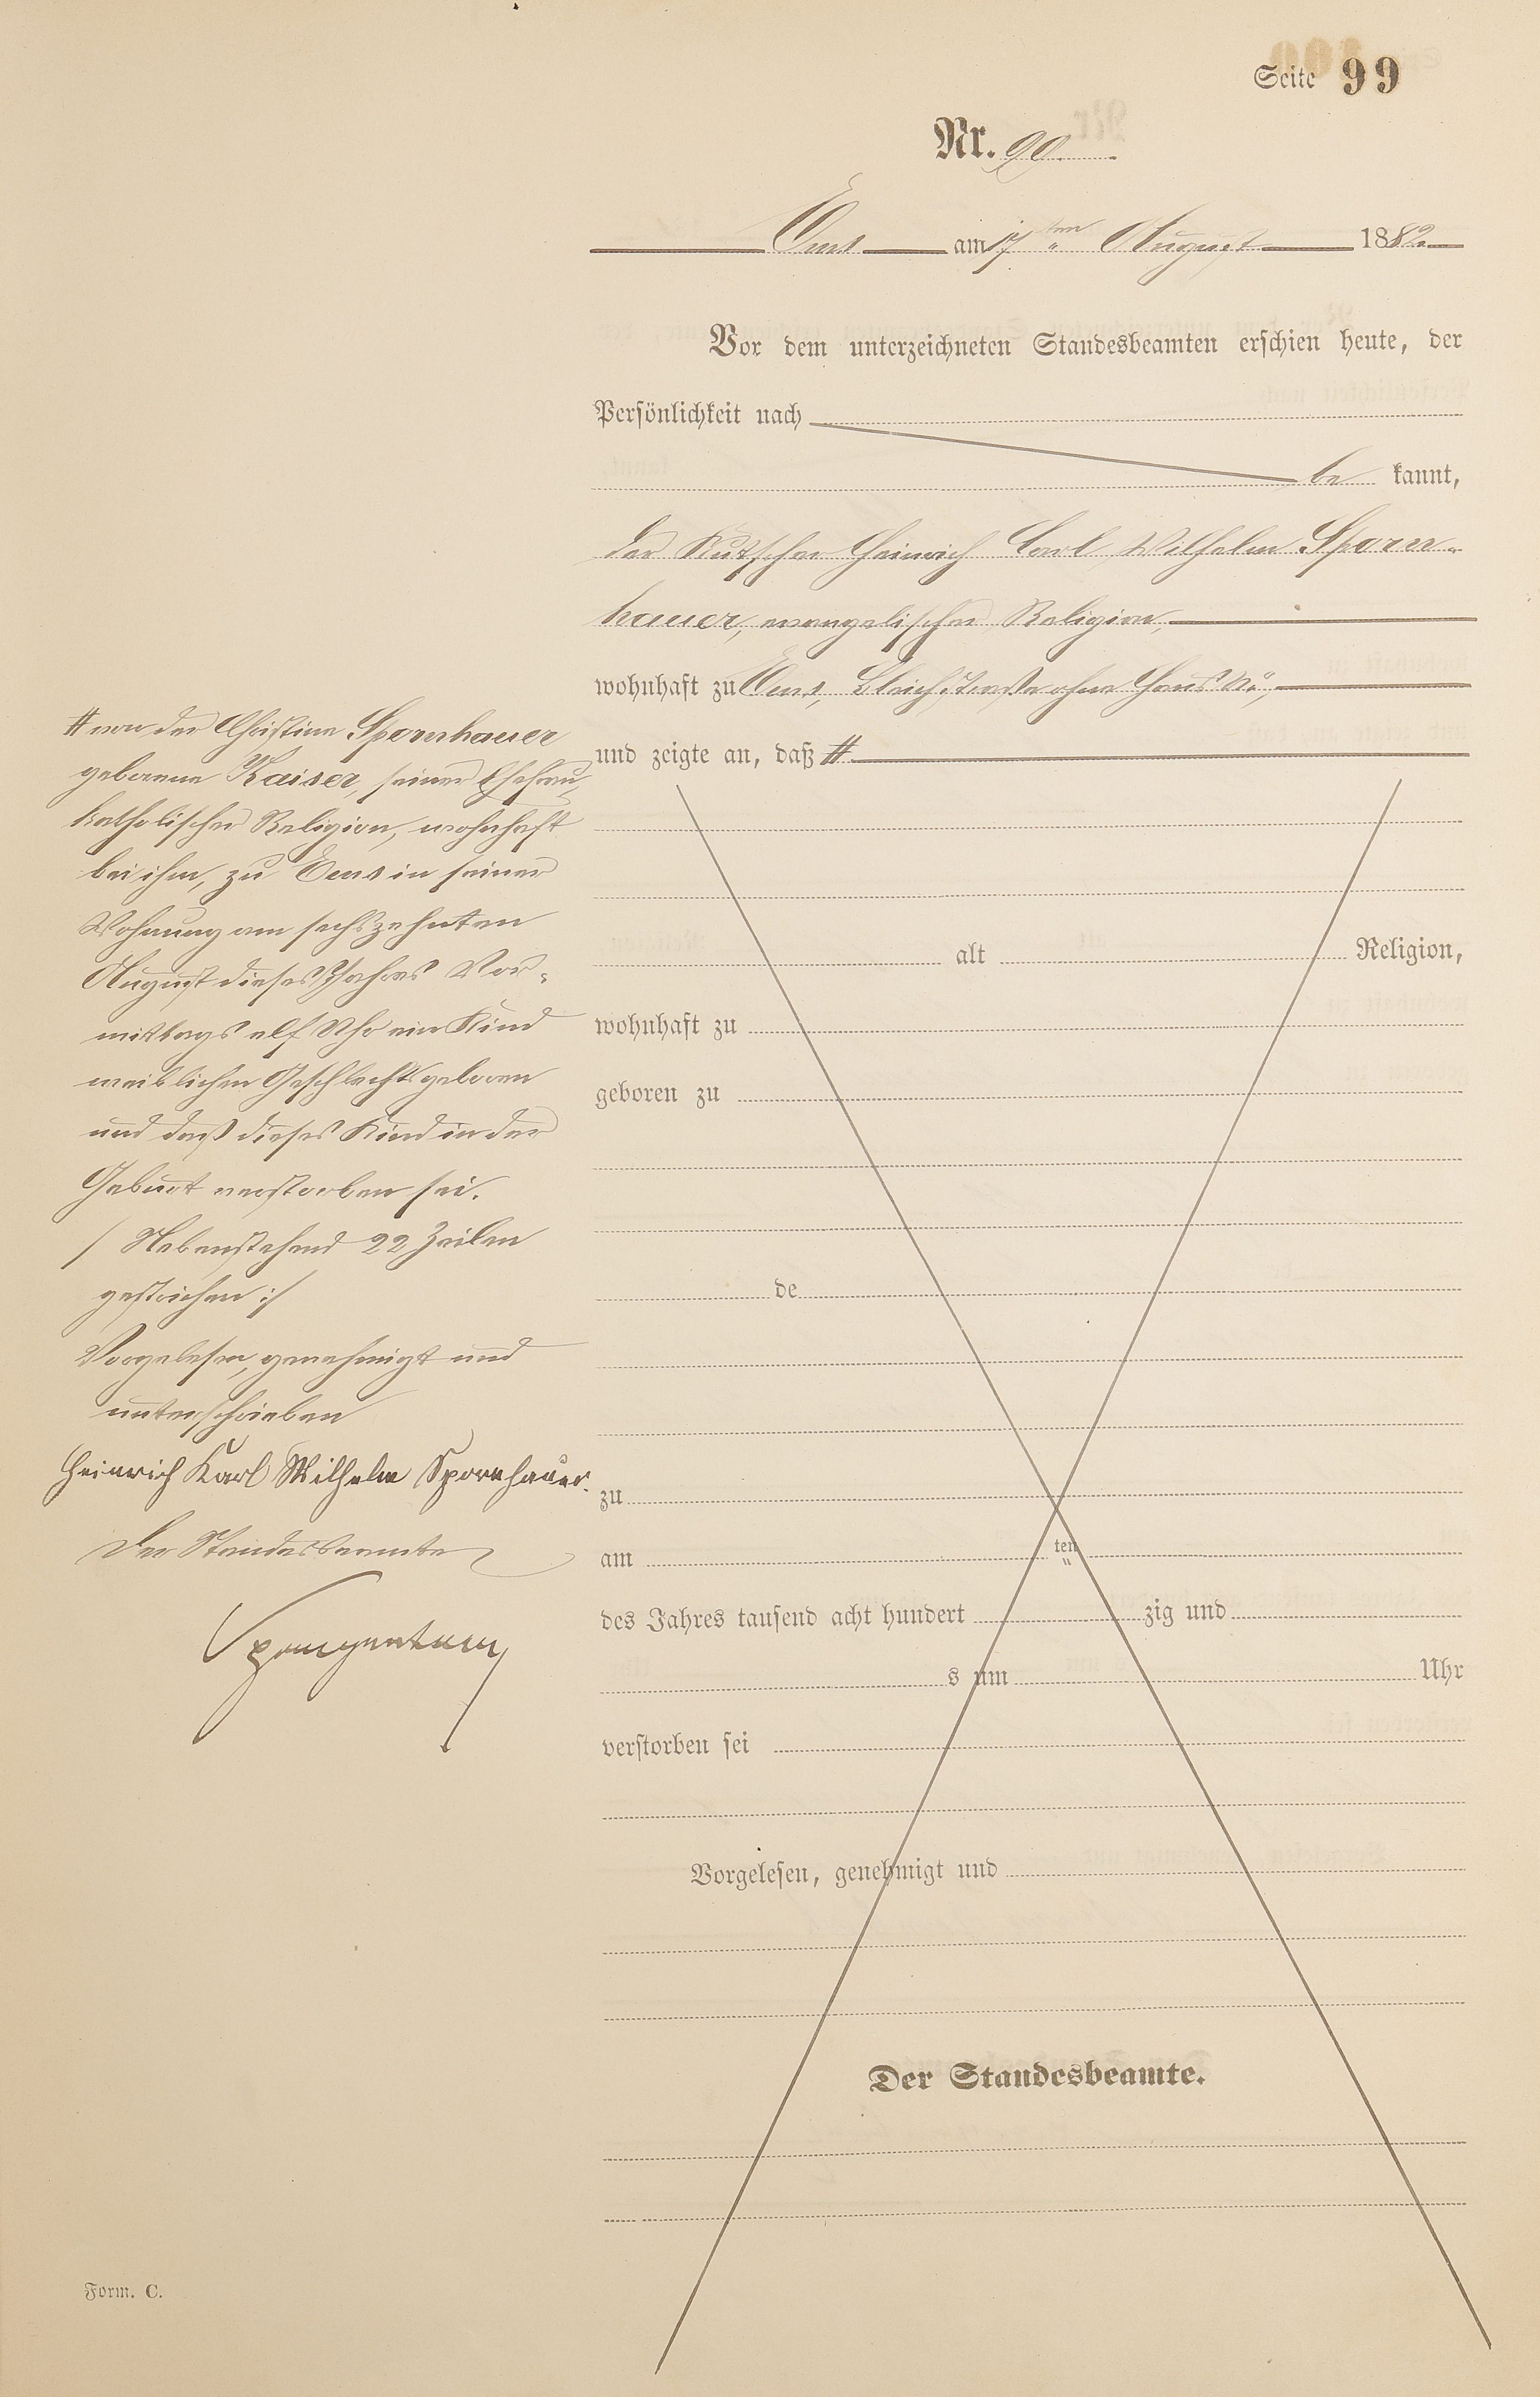 Seite 99
Nr. 90.
Ems am 17ten August 1882
Vor dem unterzeichneten Standesbeamten erschien heute, der
Persönlichkeit nach
be kannt,
der Kutscher Heinrich Carl Wilhelm Sporn-
hauer, evangelischer Religion,
wohnhaft zu Ems, Bleichstraße ohne Haus No,
und zeigte an, daß #
# von der Christine Spornhauer
geborene Kaiser, seiner Ehefrau,
katholischer Religion, wohnhaft
bei ihm, zu Ems in seiner
Wohnung am sechszehnten
August dieses Jahres Vor-
mittags elf Uhr ein Kind
weiblichen Geschlechts geboren
und daß dieses Kind in der
Geburt verstorben sei.
/ Nebenstehend 22 Zeilen
gestrichen :/
Vorgelesen, genehmigt und
unterschrieben
Heinrich Karl Wilhelm Spornhauer.
Der Standesbeamte
alt Religion,
wohnhaft zu
geboren zu
de
zu
am ten
des Jahres tausend acht hundert zig und
s um Uhr
verstorben sei
Vorgelesen, genehmigt und
Der Standesbeamte.
Form. C.